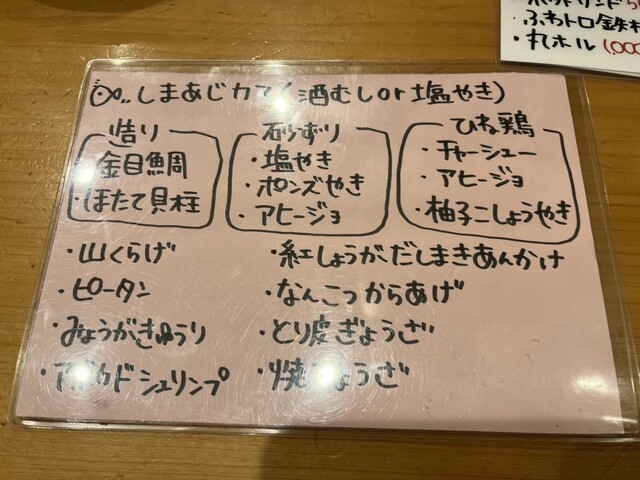 しまあじカマ(酒むしor塩やき)
造り
金目鯛
・ほたて貝柱
砂ずり
・塩やき
・ポンズやき
・アヒージョ
ひね鶏
・チャーシュー
・アヒージョ
・柚子こしょうやき
・山くらげ
・ピータン
・みょうがきゅうり
・アボカドシュリンプ
・紅しょうがだしまきあんかけ
・なんこつからあげ
・とり皮ぎょうざ
・焼ぎょうざ
・丸ホル 1,000